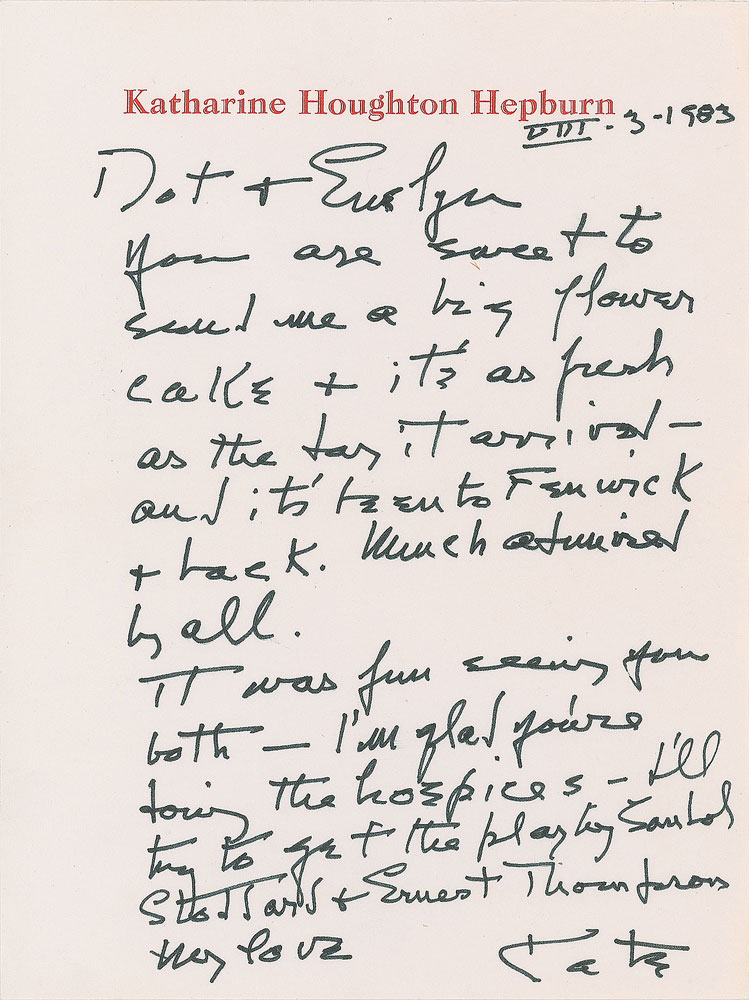 Katharine Houghton Hepburn
VIII - 3 - 1983
Dot + Evelyn
You are sweet to
send me a big flower
cake + it's as fresh
as the day it arrived —
and it's been to Fenwick
+ back. Much admired
by all.
It was fun seeing you
both — I'm glad you're
doing the hospices — I'll
try to get the play by Sandol
Stoddard + Ernest Thompson
My love Kate